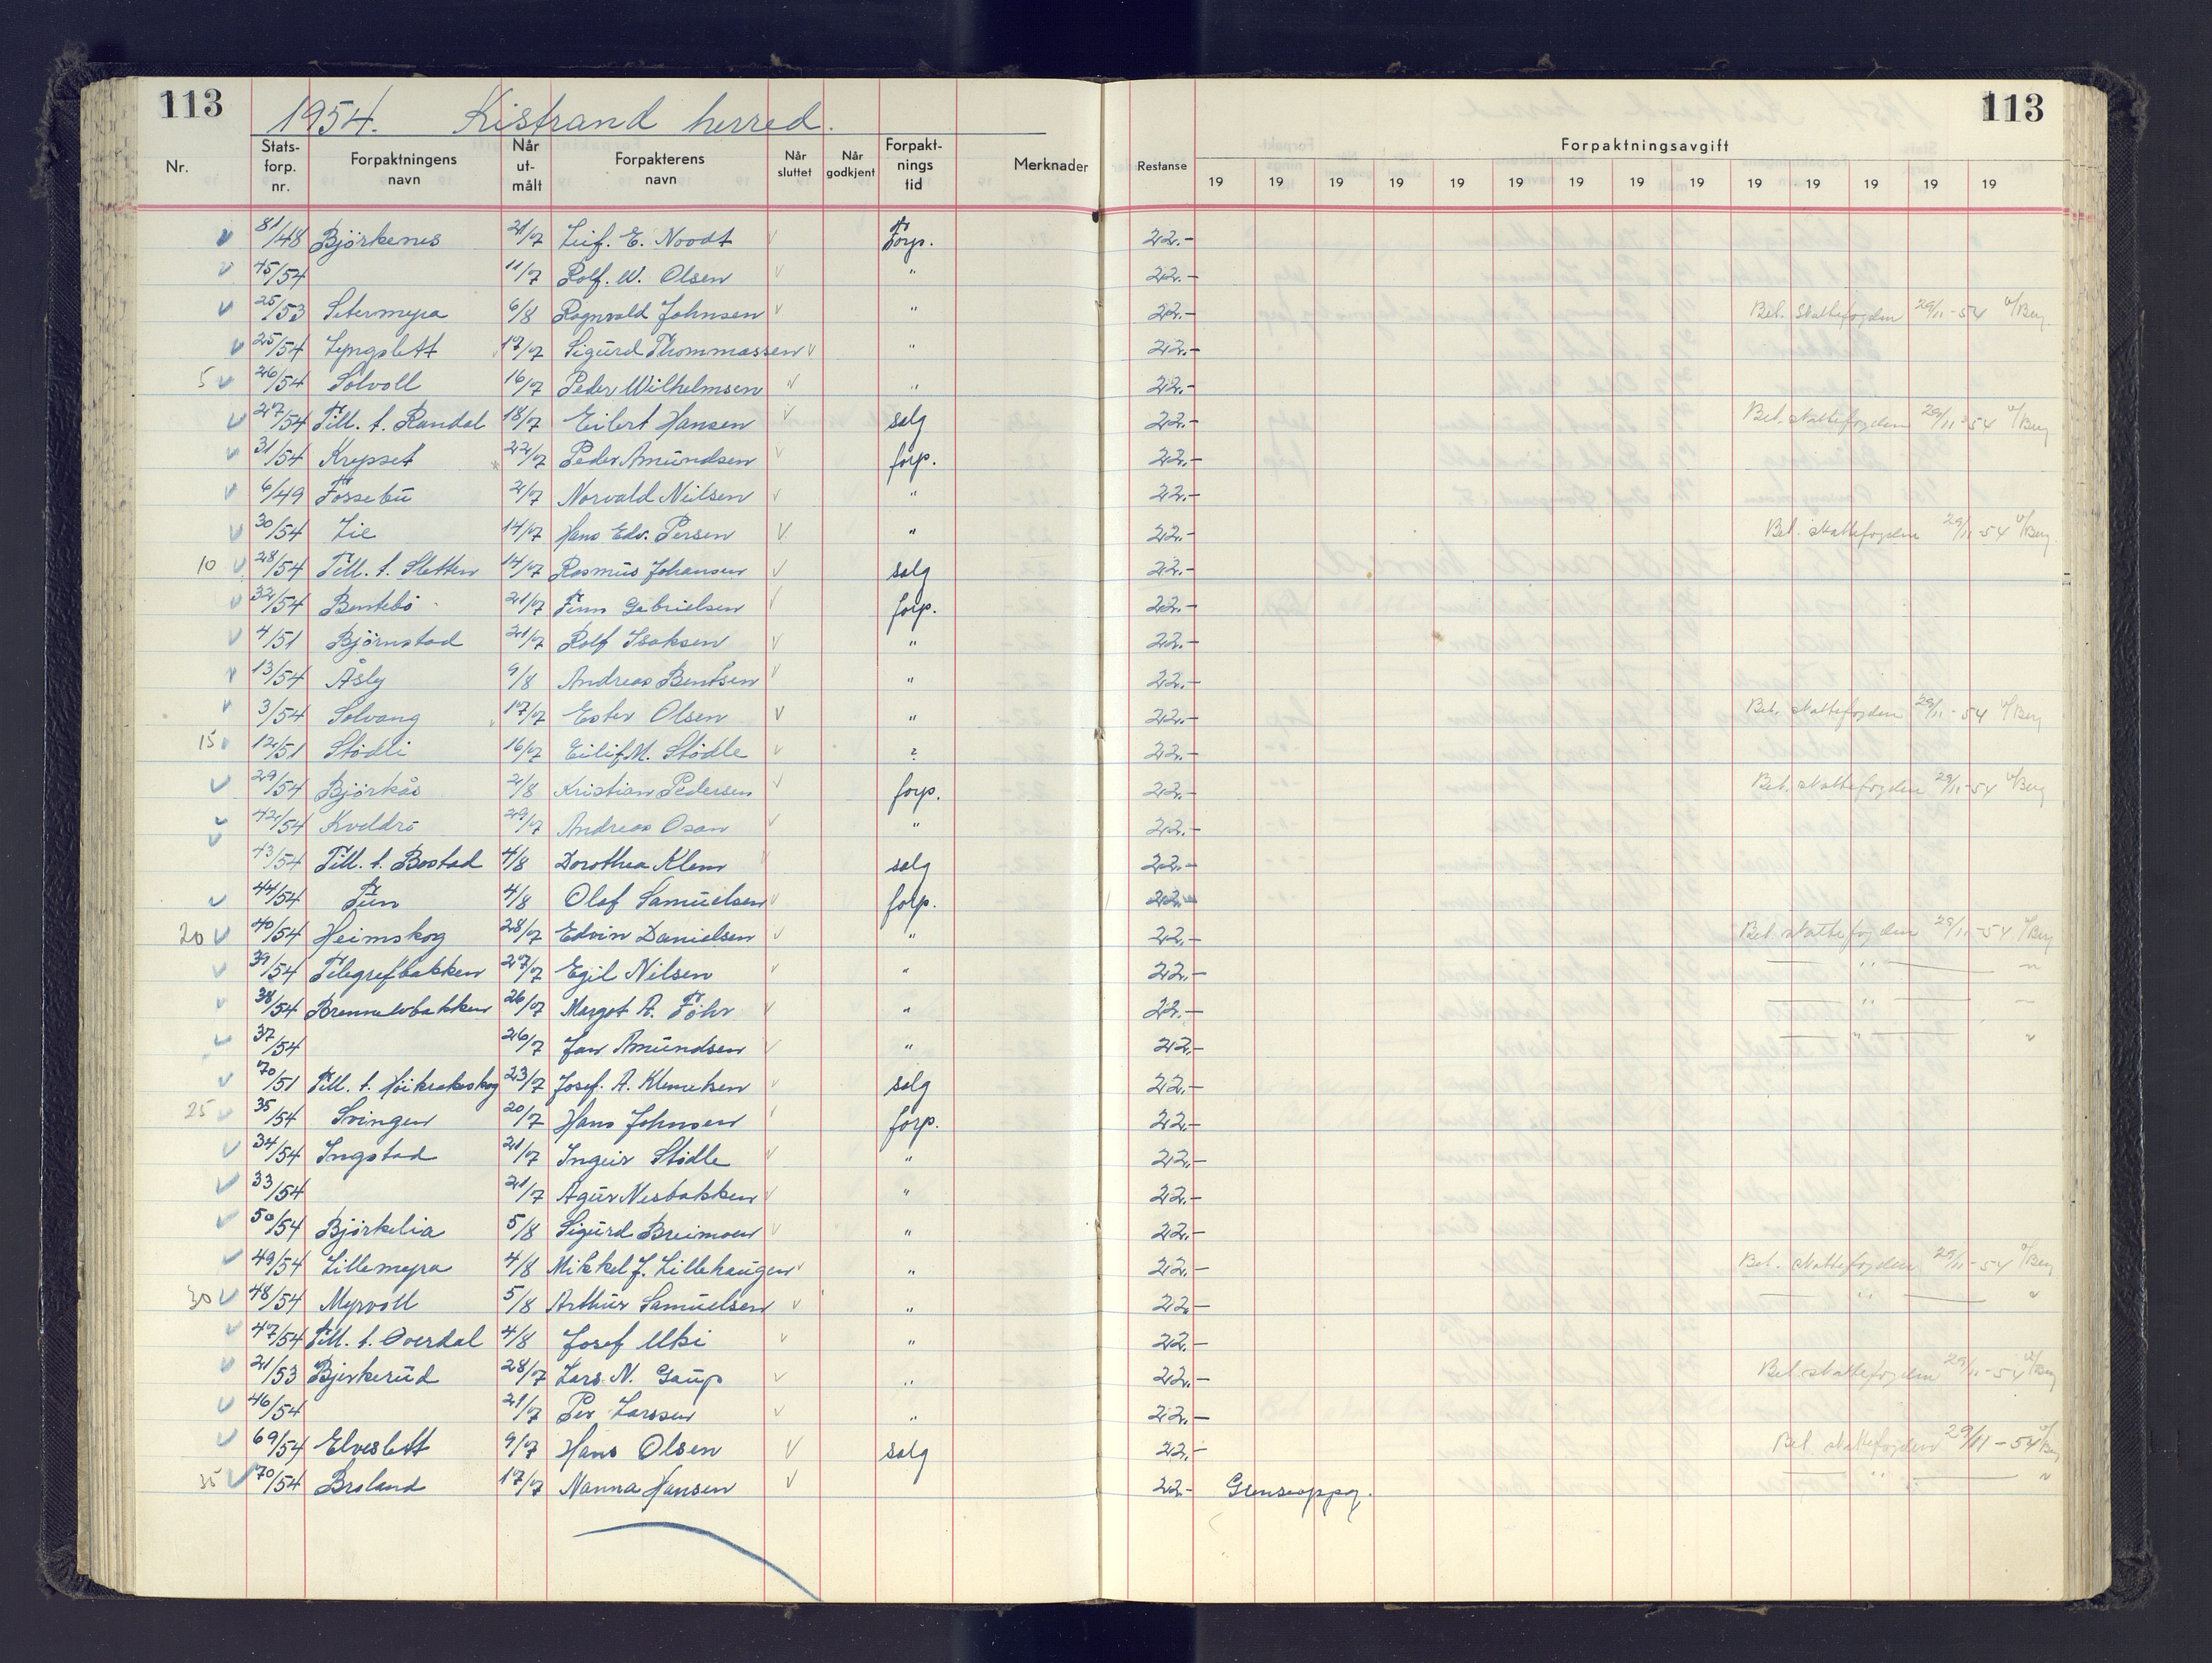 113 1954. Kistrand herred. 113
Nr. Stats-forp. nr. Forpaktningens navn Når ut-målt Forpakterens navn Når sluttet Når godkjent Forpakt-nings tid Merknader Restanse Forpaktningsavgift
19 19 19 19 19 19 19 19 19 19 19 19 19 19
81/48 Björkenes 21/7 Leif. E. Noodt V Forp. 22.-
45/54 11/7 Rolf. W. Olsen V " 22.-
25/53 Setermyra 6/8 Ragnvald Johnsen V " 22.- Bet. Skattefogden 29/11-54 Berg
25/54 Lyngslett 17/7 Sigurd Thommassen V " 22.-
5 26/54 Solvoll 16/7 Peder Wilhelmsen V " 22.-
27/54 Till. t. Randal 18/7 Eilert Hansen V salg 22.- Bet. skattefogden 29/11-54 Berg
31/54 Krepset 22/7 Peder Amundsen V forp. 22.-
6/49 Fossebu 2/7 Norvald Nilsen V " 22.-
30/54 Lie 14/07 Hans Edv. Persen V " 22.- Bet. skattefogden 29/11-54 Berg
10 28/54 Till. t. Sletten 14/07 Rasmus Johansen V salg 22.-
32/54 Bentebo 21/07 Finn Gabrielsen V forp. 22.-
4/51 Björnstad 21/07 Rolf Isaksen V " 22.-
13/54 Åsly 9/8 Andreas Bentsen V " 22.-
3/54 Solvang 17/07 Ester Olsen V " 22.- Bet. skattefogden 29/11-54 Berg
15 12/51 Stödli 16/07 Eilif M. Stödle V ? 22.-
29/54 Björkås 2/8 Kristian Pedersen V forp. 22.- Bet. skattefogden 29/11-54 Berg
42/54 Kveldro 29/07 Andreas Osan V " 22.-
43/54 Till. t. Bostad 4/8 Dorothea Klem V salg 22.-
44/54 Tun 4/8 Olaf Samuelsen V forp. 22.-
20 40/54 Heimskog 28/07 Edvin Danielsen V " 22.- Bet skattefogden 29/11-54 Berg
39/54 Telegrafbakken 27/07 Egil Nilsen V " 22.- — " — "
38/54 Brennelvbakken 26/07 Margot A. Föhr V " 22.- — " —
37/54 26/7 Jan Amundsen V " 22.- — " — "
70/51 Till. t. Höikrakeskog 23/7 Josef. A. Klemetsen V salg 22.-
25 35/54 Svingen 20/7 Hans Johnsen V forp. 22.-
34/54 Ingstad 21/07 Ingeir Stödle V " 22.-
33/54 21/7 Agur Nesbakken V " 22.-
50/54 Björkelia 5/8 Sigurd Breimoen V " 22.-
49/54 Lillemyra 4/8 Mikkel J. Lillehaugen V " 22.- Bet. skattefogden 29/11-54 Berg
30 48/54 Myrvoll 5/8 Arthur Samuelsen V " 22. — " — "
47/54 Till. t. Overdal 4/8 Josef Utsi V " 22.-
21/53 Bjerkerud 28/07 Lars. N. Gaup V " 22.- Bet. skattefogden 29/11-54 Berg
46/54 21/7 Per Larssen V " 22.-
69/54 Elveslett 9/07 Hans Olsen V salg 22.- Bet. skattefogden 29/11-54 Berg
35 70/54 Broland 17/07 Nanna Hansen V 22- Grenseoppg. — " — "